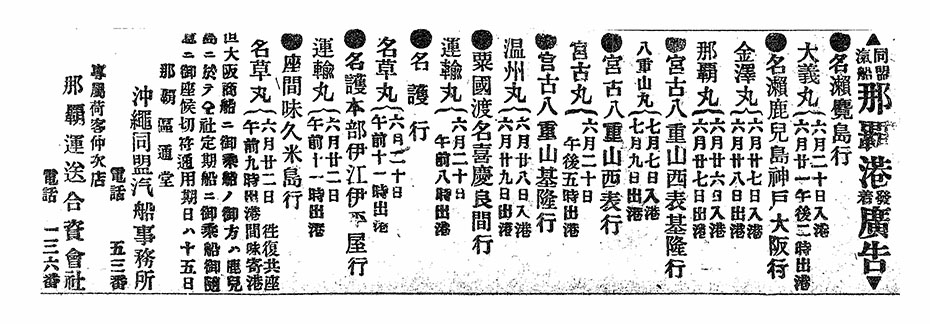 ▲同盟汽船那覇港發着廣告▼
●名瀬鹿兒島行
大義丸 六月二十日入港
六月廿一日午後二時出港
●名瀬鹿兒島神戸大阪行
金澤丸 六月廿七日入港
六月廿八日出港
那覇丸 六月廿六日入港
六月廿七日出港
●宮古八重山西表基隆行
八重山丸 七月七日入港
七月九日出港
●宮古八重山西表行
宮古丸 六月二十日
午後五時出港
●宮古八重山基隆行
温州丸 六月廿八日入港
六月廿九日出港
●粟國渡名喜慶良間行
運輸丸 六月二十日
午前八時出港
●名護行
名草丸 六月二十日
午前十一時出港
●名護本部伊江伊平屋行
運輸丸 六月廿二日
午前十一時出港
●座間味久米島行
名草丸 六月廿二日 往復共座
午前九時出港 間味寄港
但大阪商船ニ御乗船ノ御方ハ鹿兒
島ニ於テ仝社定期船ニ御乗船御随
意ニ御座候切符通用期日ハ十五日
那覇區通堂
沖繩同盟汽船事務所
電話 五三番
専屬荷客仲次店
那覇運送合資會社
電話 一三六番